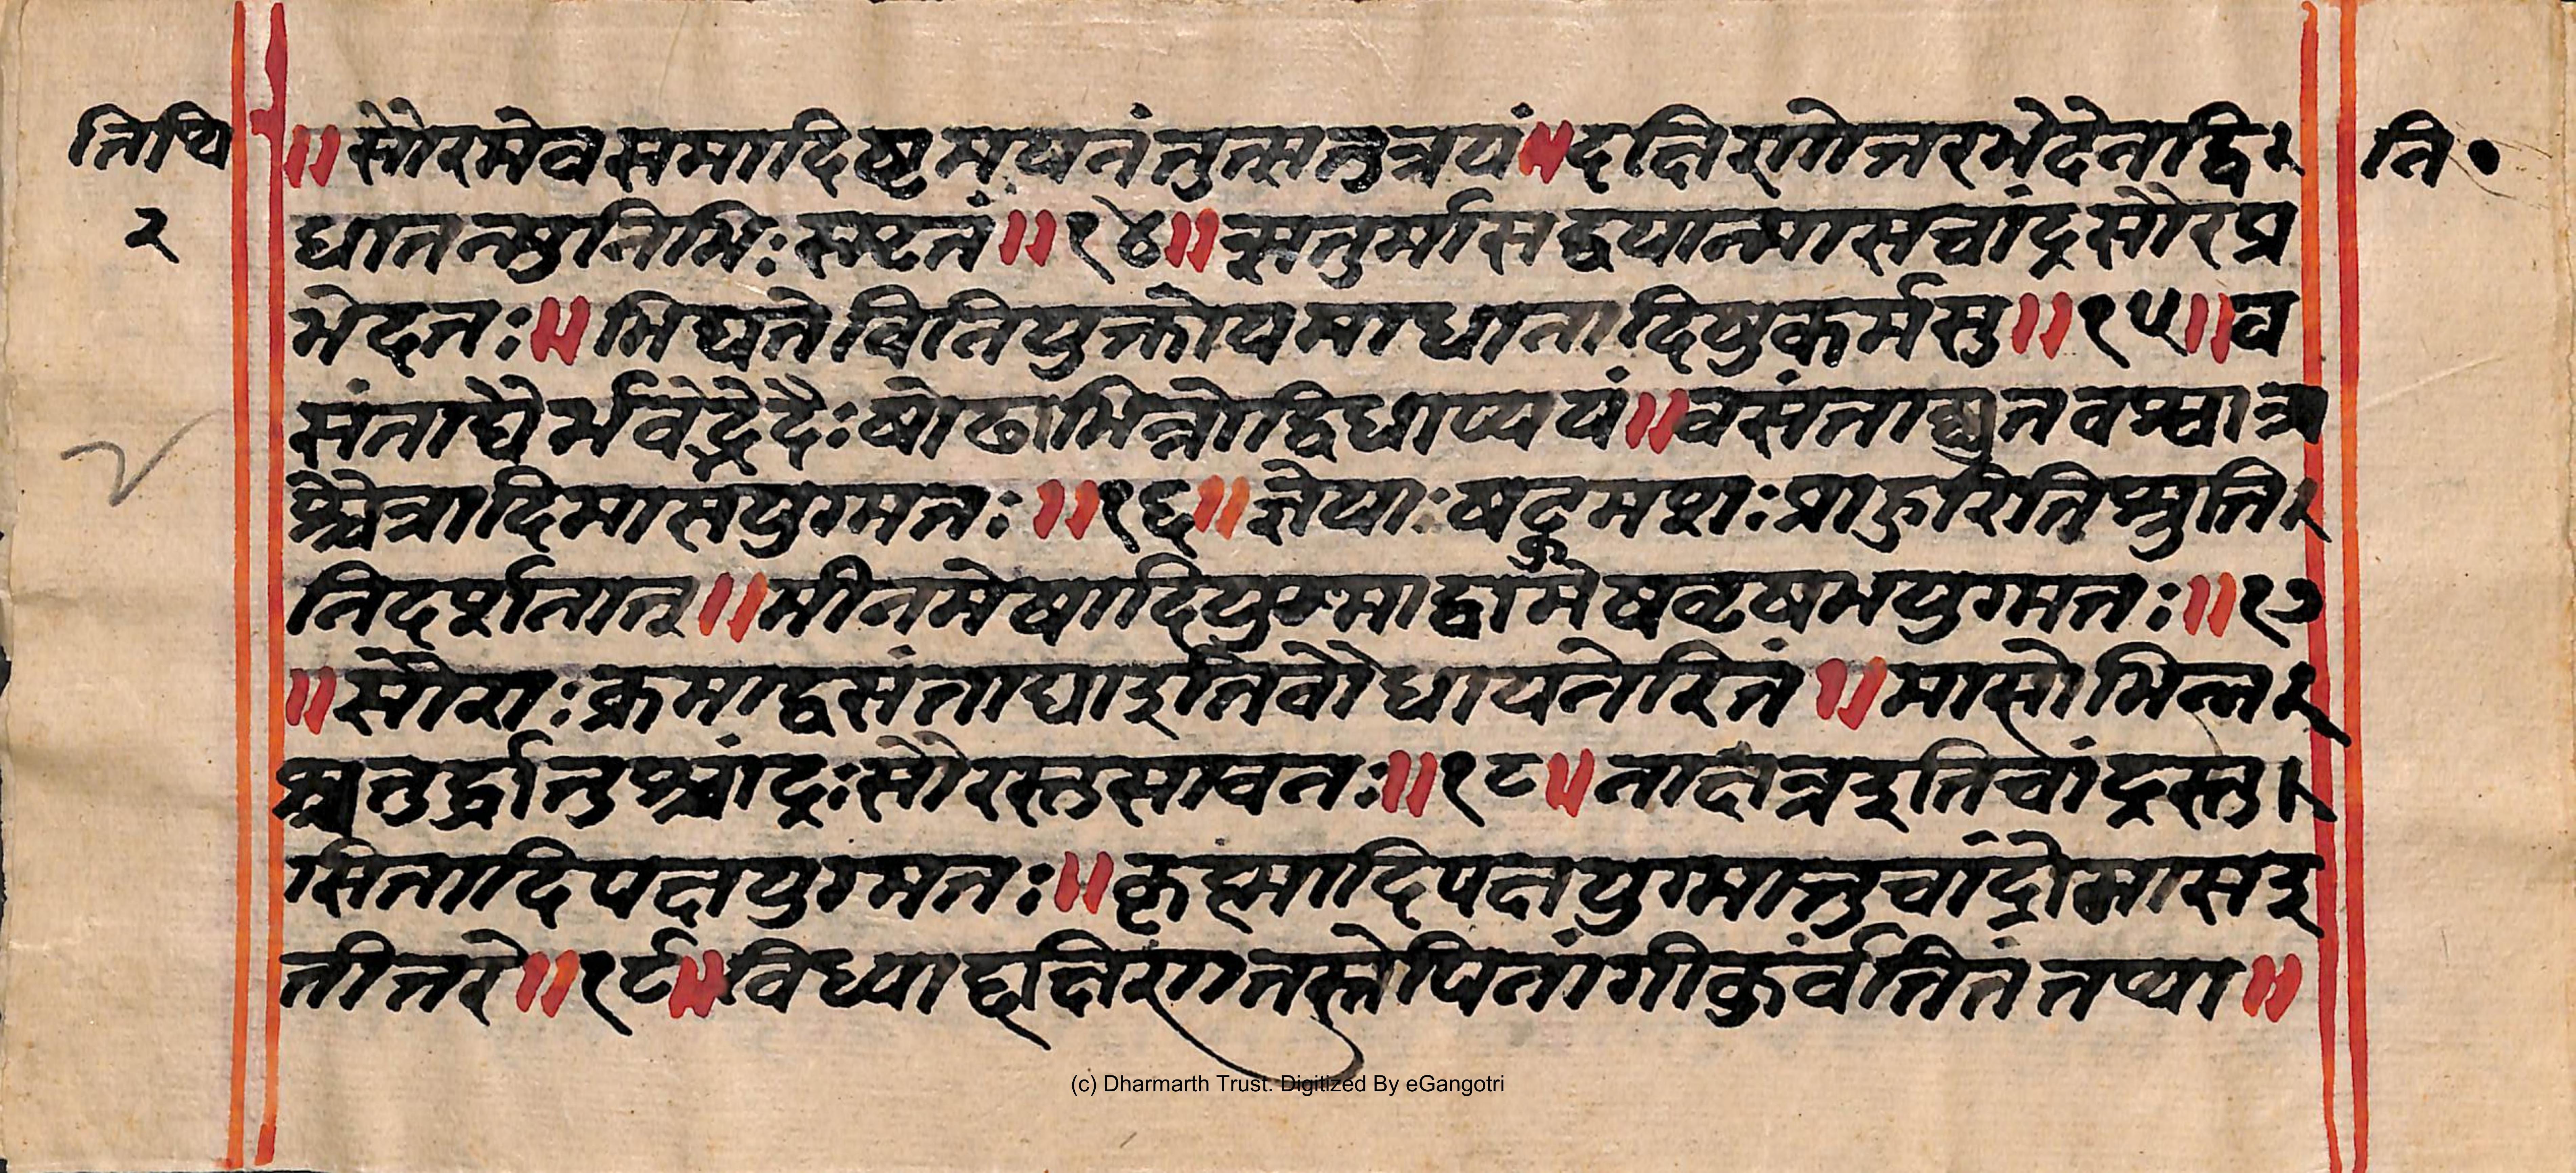 तिथि
२
॥ सौरमेव समादिष्टमयनं तुत्सतुत्रयं ॥ दक्षिणोत्तरभेदेन द्वि
धा तन्मुनिभिः स्मृतं ॥ १४ ॥ ऋतुर्मासद्वयान्मासचांद्रसौरप्र
भेदतः ॥ भिद्यते विनियुक्तोयमाधानादिषु कर्मसु ॥ १५ ॥ व
संताद्यैर्भवेद्भेदैः षोढाभिन्नो द्विधाप्ययं ॥ वसंताद्यृतवश्चात्र
चैत्रादिमासयुग्मतः ॥ १६ ॥ ज्ञेयाः षट्क्रमशः प्राहुरिति श्रुति
निदर्शनात् ॥ मीनमेषादियुग्माद्वा मेषवृषभयुग्मतः ॥ १७
॥ सौराः क्रमाद्वसंताद्या इति बौधायनेरितं ॥ मासोभिन्न
श्चतुर्द्धा तु श्चांद्रः सौरस्तु सावनः ॥ १८ ॥ नाक्षत्र इति चांद्रस्तु
सितादिपक्षयुग्मतः ॥ कृष्णादिपक्षयुग्मात्तु चांद्रो मास इ
तीतरे ॥ १९ ॥ विंध्याद्दक्षिणतस्तेपि नांगीकुर्वंति तं तथा ॥
ति॰
(c) Dharmarth Trust. Digitized By eGangotri